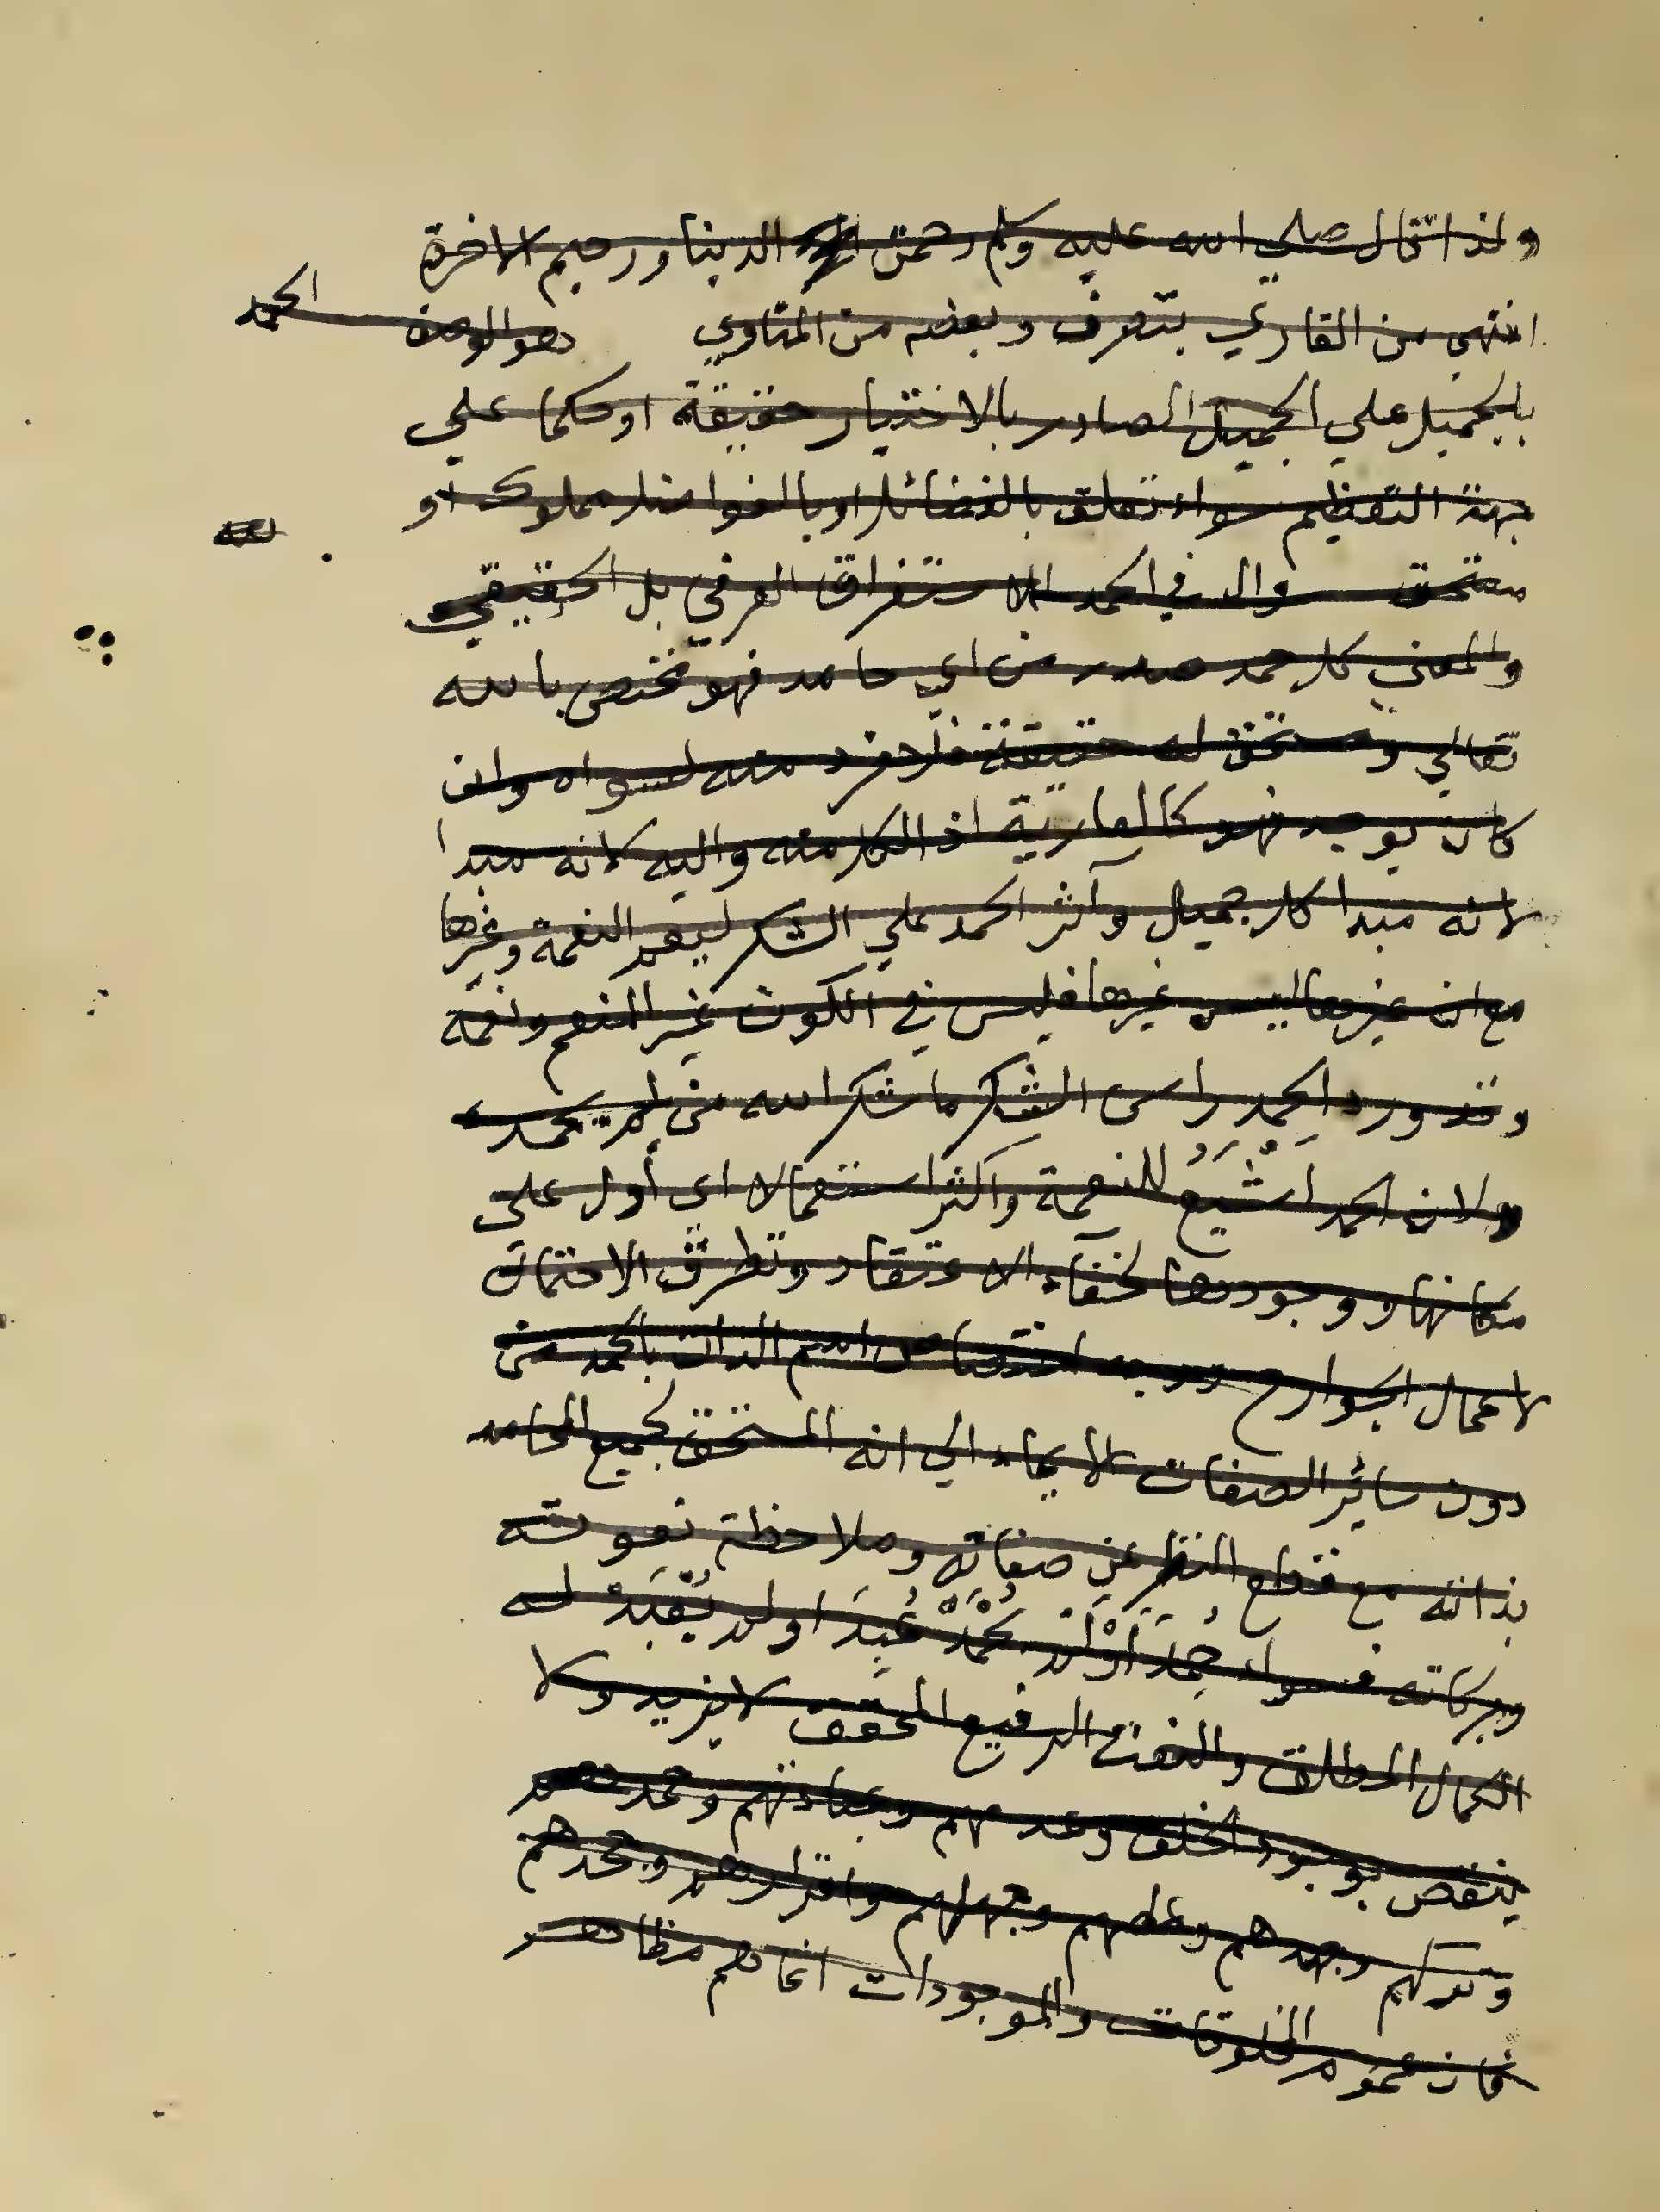 ولذا قال صلي الله عليه وسلم رحمن الدينا ورحيم الاخرة
انتهي من القاري بتصرف وبعضه من المناوي وهو الوصف
الحمد
بالجميل علي الجميل الصادر بالاختيار حقيقة او حكما علي
جهة التعظيم سواء تعلق بالفضائل او بالفواضل مملوك او
لله
مستحق وال في الحمد للاستغراق العرفي بل الحقيقي
والمعني كل حمد صدر من اي حامد فهو مختص بالله
تعالي ومستحق له حقيقة فلا فرد منه لسواه وان
كان يوجد فهو كالعارية اذ الكل منه واليه لانه مبدا
لانه مبدا كل جميل وآثر الحمد علي الشكر ليعم النعمة وغيرها
مع ان غيرها ليس غيرها فليس في الكون غير المنعم ونعمه
وقد ورد الحمد راس الشكر ما شكر الله من لم يحمده
ولان الحمد اشْيَعُ للنعمة واكثر استعمالا اى أدل علي
مكانها ووجودها لخفآء الاعتقاد وتطرق الاحتمال
لاعمال الجوارح ووجه اختصاص اسم الذات بالحمد من
دون سائر الصفات للايماء الي انه المستحق لجميع المحامد
بذاته مع قطع النظر عن صفاته وملاحظة نعوته
وبركاته فسواء حُمِدَ أوْ لم يُحْمَدْ عُبِدَ او لم يُعْبَدْ له
الكمال المطلق والنعت الرفيع المحقق لا يزيد ولا
ينقص بوجود الخلق وعدمهم وعبادتهم وحمدهم
وتركهم وجهدهم وعلمهم وجهلهم واقرارهم وجحدهم
فان عموم المخلوقات والموجودات انما هم مظاهر